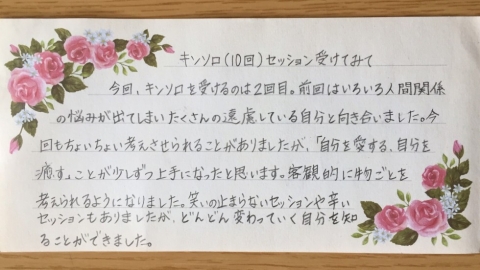 キンソロ(10回)セッション受けてみて
今回、キンソロを受けるのは2回目。前回はいろいろ人間関係
の悩みが出てしまいたくさんの遠慮している自分と向き合いました。今
回もちょいちょい考えさせられることがありましたが、「自分を愛する、自分を
癒す」ことが少しずつ上手になったと思います。客観的に物ごとを
考えられるようになりました。笑いの止まらないセッションや辛い
セッションもありましたが、どんどん変わっていく自分を知
ることができました。